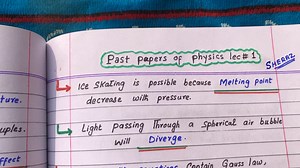 Past papers of physics lec#1
SHERRZ
Ice Skating is possible because Melting point
decrease with pressure.
ture.
Light passing through a spherical air bubble
uples.
will Diverge.
ffect
Contain Gauss law,